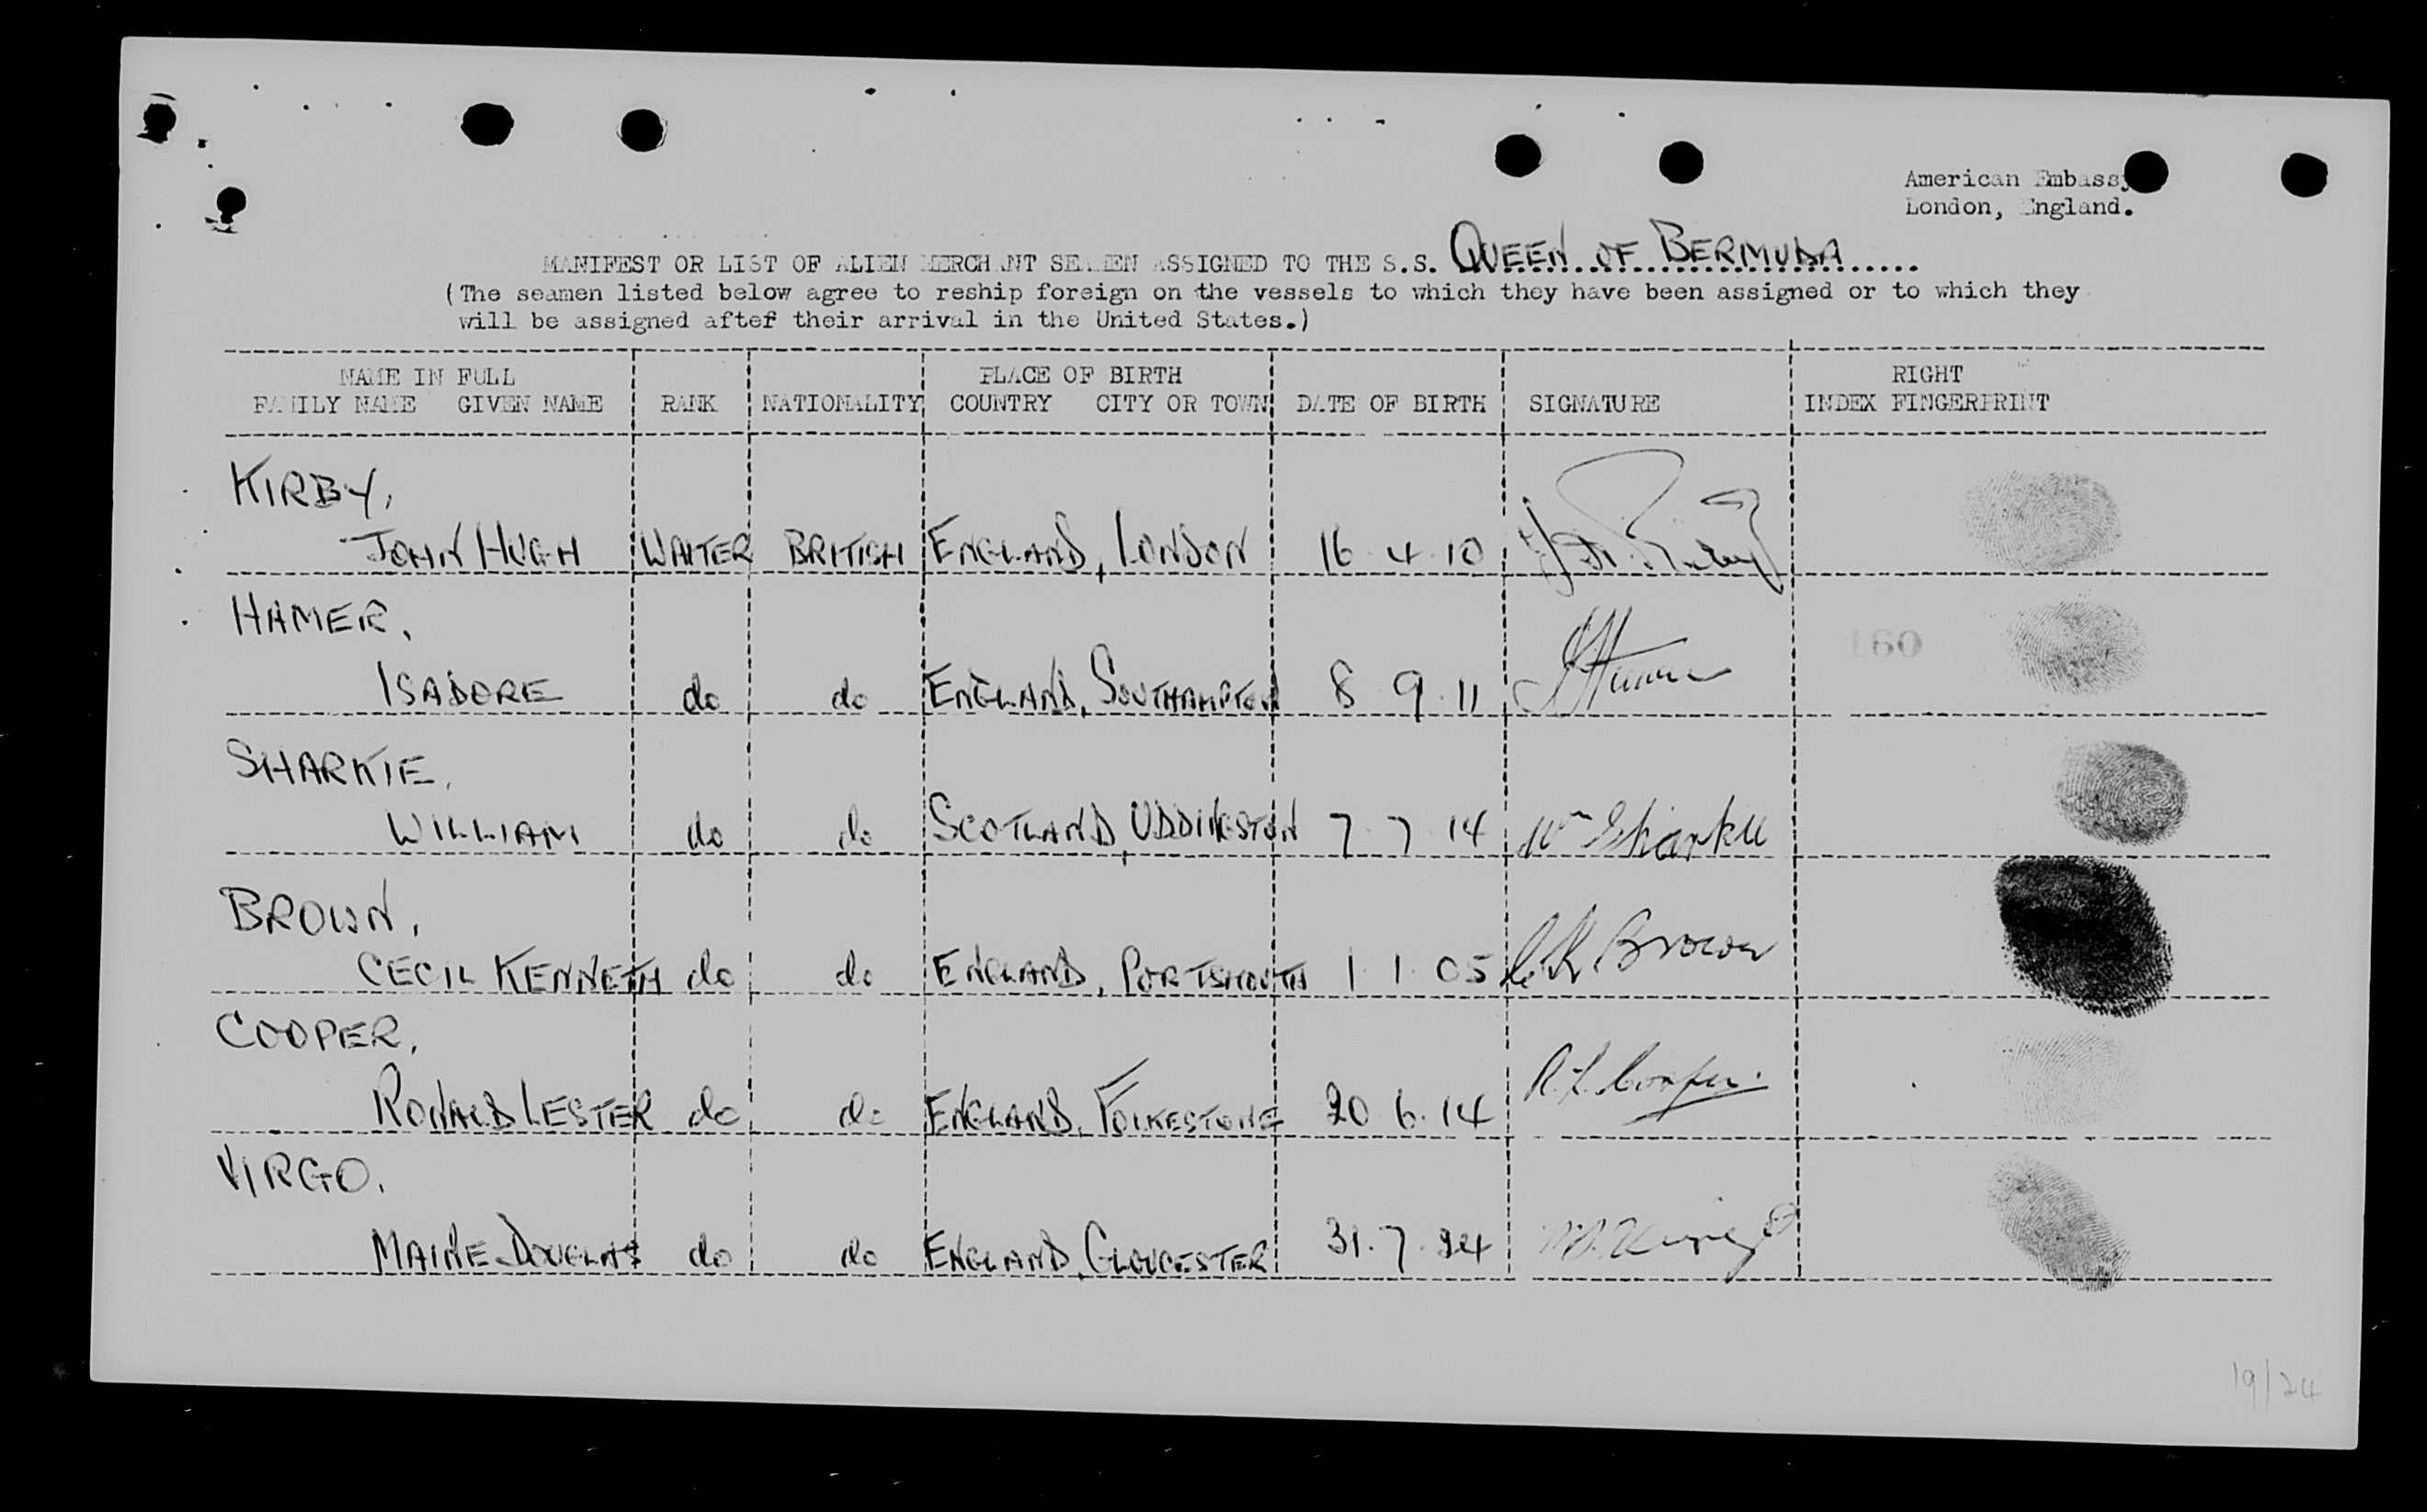 American Embassy
London, England.
MANIFEST OR LIST OF ALIEN MERCHANT SEAMEN ASSIGNED TO THE S.S. QUEEN OF BERMUDA
(The seamen listed below agree to reship foreign on the vessels to which they have been assigned or to which they
will be assigned after their arrival in the United States.)
NAME IN FULL PLACE OF BIRTH RIGHT
FAMILY NAME GIVEN NAME RANK NATIONALITY COUNTRY CITY OR TOWN DATE OF BIRTH SIGNATURE INDEX FINGERPRINT
KIRBY,
JOHN HUGH WAITER BRITISH ENGLAND, LONDON 16 4 10
HAMER,
160
ISADORE do do ENGLAND, SOUTHAMPTON 8 9 11
SHARKIE,
WILLIAM do do SCOTLAND, UDDINGSTON 7 7 14 Wm Sharkie
BROWN,
CECIL KENNETH do do ENGLAND, PORTSMOUTH 1 1 05 C. K Brown
COOPER,
RONALD LESTER do do ENGLAND, FOLKESTONE 20 6 14 R. L. Cooper.
VIRGO,
MAINE DOUGLAS do do ENGLAND, GLOUCESTER 31. 7. 24 M D. Virgo
19/24